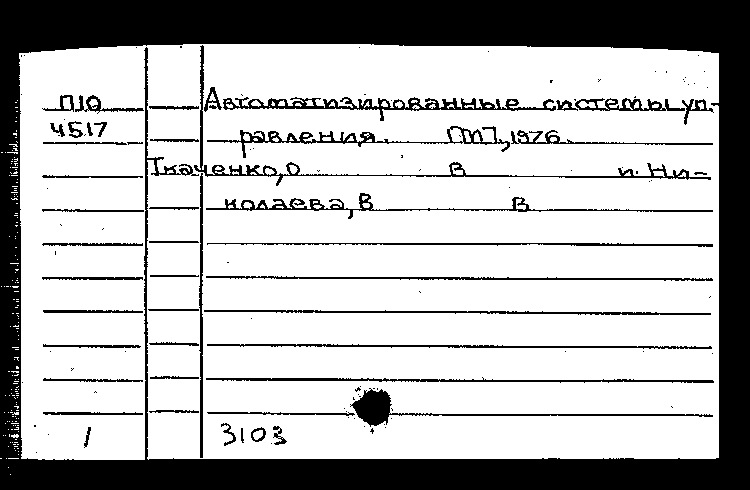 П10 Автоматизированные системы уп-
4517 равления. ГПП, 1976.
Ткаченко, О В и. Ни-
колаева, В В
1 3103